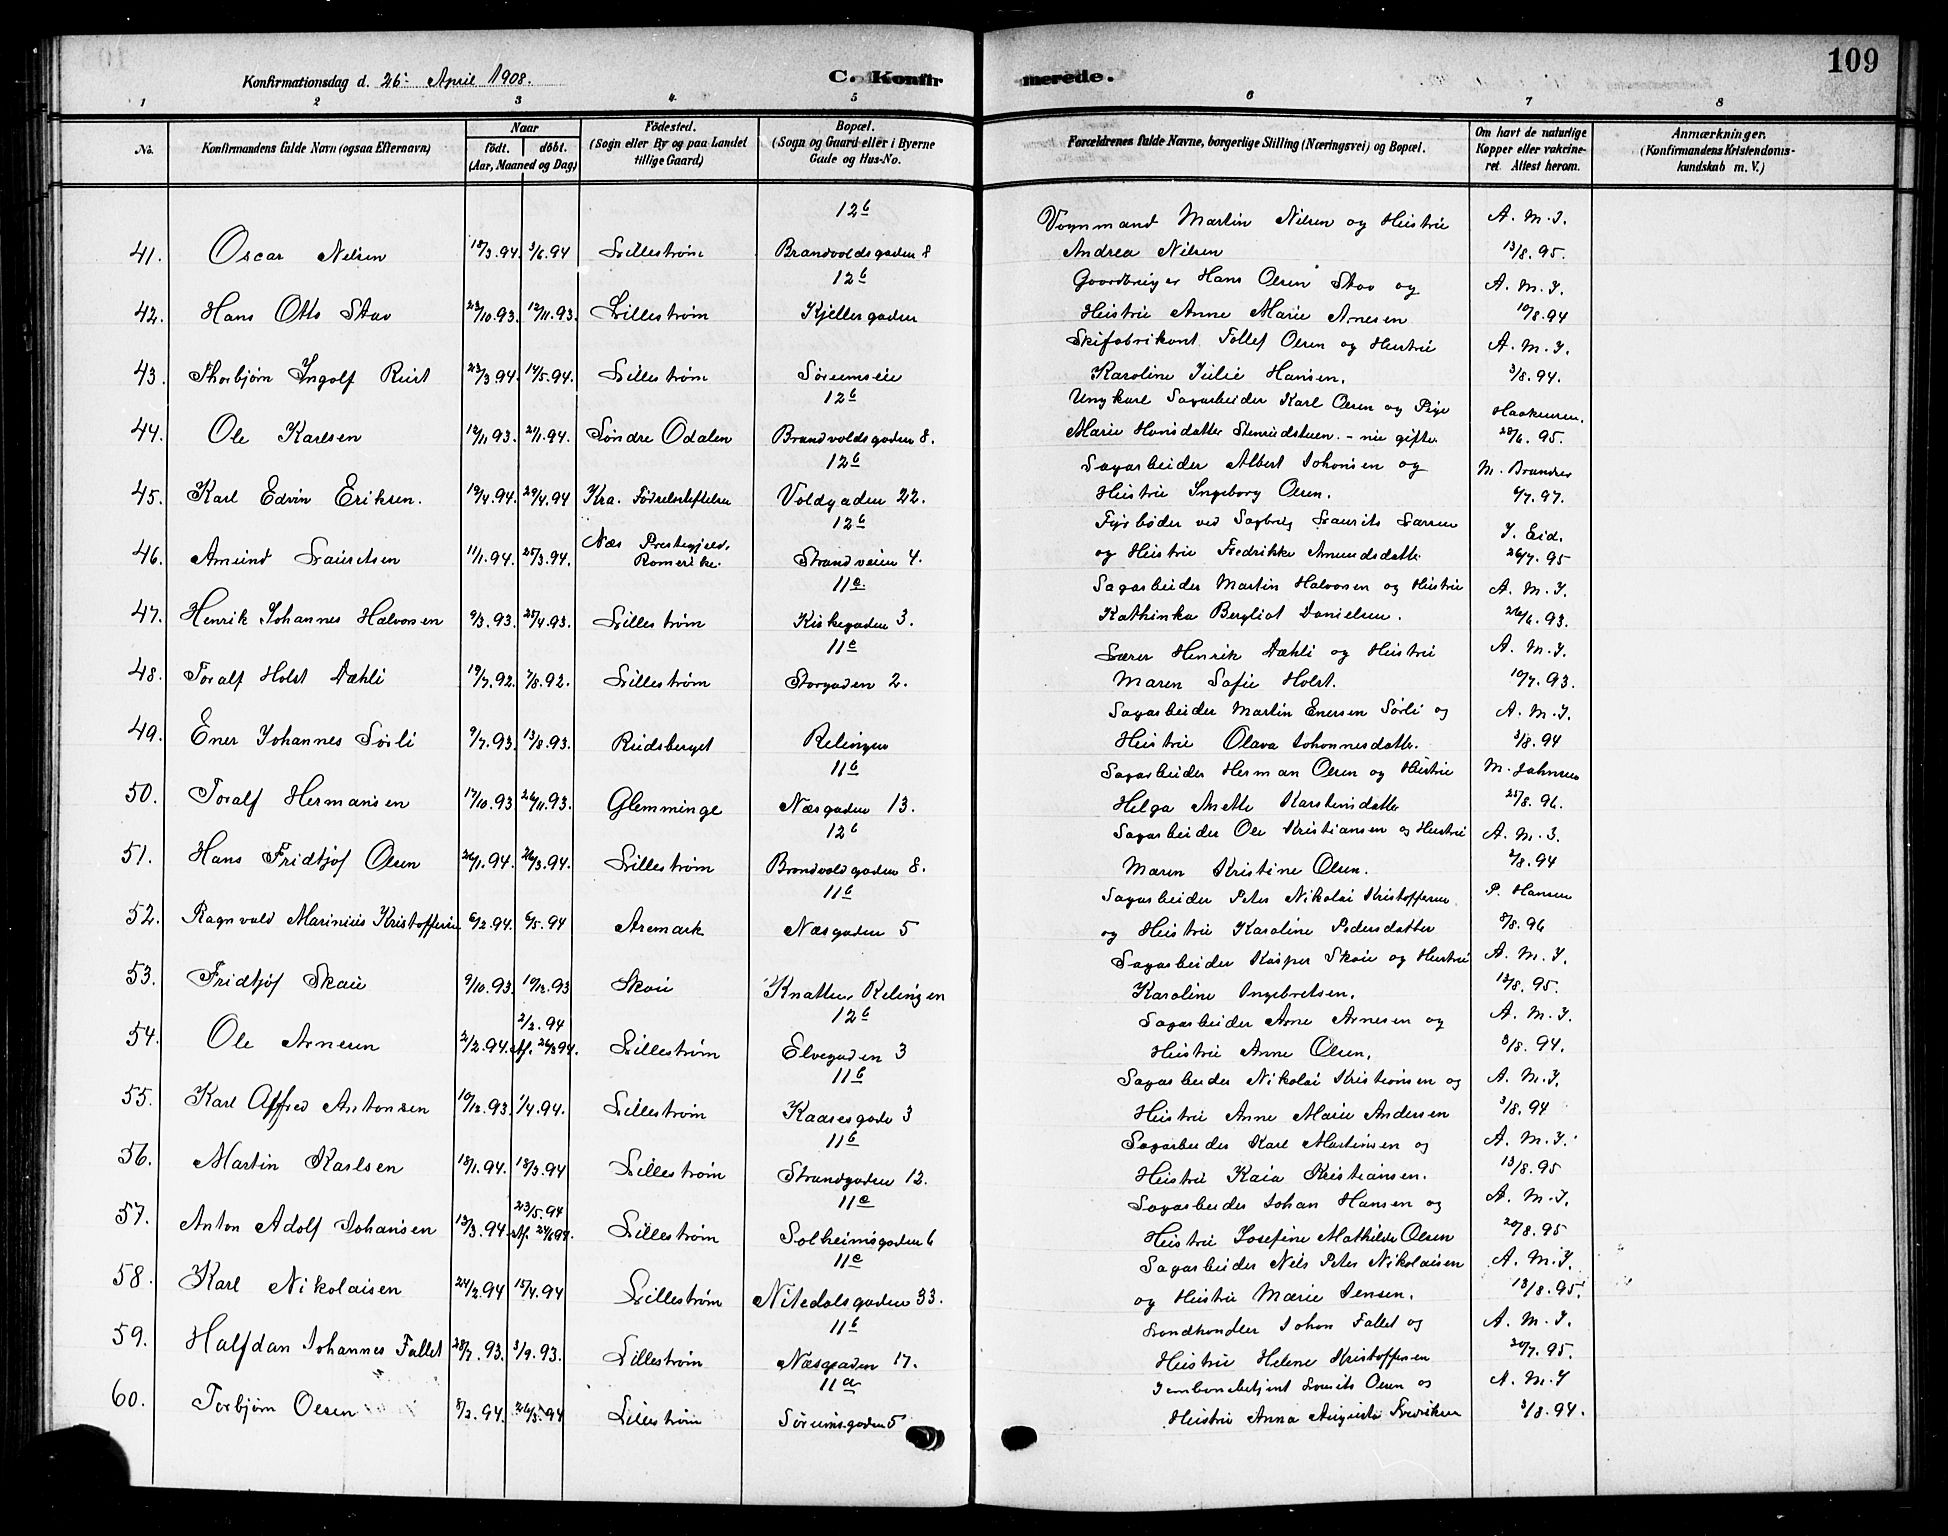 109
Konfirmationsdag d. 26' April 1908. C. Konfirmerede.
1 2 3 4 5 6 7 8
No.
Konfirmandens fulde Navn (ogsaa Efternavn)
Naar
født. døbt.
(Aar, Maaned og Dag)
Fødested.
(Sogn eller By og paa Landet
tillige Gaard)
Bopæl.
(Sogn og Gaard eller i Byerne
Gade og Hus-No.
Forældrenes fulde Navne, borgerlige Stilling (Næringsvei) og Bopæl.
Om havt de naturlige
Kopper eller vakcine-
ret. Attest herom.
Anmærkninger.
(Konfirmandens Kristendoms-
kundskab m. V.)
12b Vognmand Martin Nilsen og Hustru A. M. I.
41. Oscar Nilsen 18/3.94 3/6.94 Lillestrøm Brandvoldsgaden 8 Andrea Nilsen 13/8.95.
12b Gaardbruger Hans Olsen Stav og A. M. I.
42. Hans Otto Stav 22/10.93. 12/11.93. Lillestrøm Kjellergaden Hustru Anne Marie Arnesen 10/8.94
Skifabrikant Tollef Olsen og Hustru A. M. I.
43. Thorbjørn Ingolf Rust 23/3.94. 14/5.94. Lillestrøm Sørumseie Karoline Julie Hansen. 3/8.94.
12b Ungkarl Sagarbeider Karl Olsen og Pige Haakensen.
44. Ole Karlsen 12/11.93. 21/1.94. Søndre Odalen Brandvoldsgaden 8. Marie Hansdatter Stenrudstuen. - nu gifte. 28/6.95.
12b Sagarbeider Albert Johansen og M. Brandrer
45. Karl Edvin Eriksen. 19/4.94. 29/4.94 Kra. Fødselsstiftelse Voldgaden 22. Hustru Ingeborg Olsen. 6/7.97.
12b Fyrbøder ved Sagbrug Laurits Larsen J. Eid.
46. Amund Lauritsen 11/1.94. 25/3.94. Næs Prestegjeld, Romerike. Strandveien 4. og Hustru Fredrikke Amundsdatter 26/7.95
11c Sagarbeider Martin Halvorsen og Hustru A. M. I.
47. Henrik Johannes Halvorsen 9/3.93. 25/4.93. Lillestrøm Kirkegaden 3. Kathinka Bergliot Danielsen. 26/6.93.
11c Lærer Henrik Dæhli og Hustru A. M. I.
48. Toralf Holst Dæhli 19/7.92. 7/8.92. Lillestrøm Storgaden 2. Maren Sofie Holst. 10/7.93.
Sagarbeider Martin Enersen Sørli og A. M. I.
49. Ener Johannes Sørli 9/7.93. 13/8.93. Rudsberget Relingen Hustru Olava Johannesdatter. 3/8.94
11b Sagarbeider Herman Olsen og Hustru M. Johnsen
50. Toralf Hermansen 17/10.93 26/11.93. Glemminge Næsgaden 13. Helga Anette Karstensdatter 25/8.96.
12b Sagarbeider Ole Kristiansen og Hustru A. M. I.
51. Hans Fridtjof Olsen 26/1.94. 26/3.94. Lillestrøm Brandvoldsgaden 8. Maren Kristine Olsen. 2/8.94
11b Sagarbeider Peter Nikolai Kristoffersen P. Hansen
52. Ragnvald Marinius Kristoffersen 6/2.94. 6/5.94 Aremark Næsgaden 5 og Hustru Karoline Pedersdatter 8/8.96
Sagarbeider Kasper Skau og Hustru A. M. I.
53. Fridtjof Skau 9/10.93. 10/12.93 Skau Knatten, Relingen Karoline Ingebretsen. 12/8.95.
2/2.94 12b Sagarbeider Arne Arnesen og A. M. I.
54. Ole Arnesen 2/2.94. Af. 26/3 94. Lillestrøm Elvegaden 3 Hustru Anne Olsen. 3/8.94.
11b Sagarbeider Nikolai Kristiansen og A. M. I.
55. Karl Alfred Antonsen 10/12.93. 1/4.94. Lillestrøm Kaaresgade 3 Hustru Anne Marie Andersen 3/8.94
11b Sagarbeider Karl Martinsen og A. M. I.
56. Martin Karlsen 18/1.94. 18/3.94 Lillestrøm Strandgaden 12. Hustru Kaia Kristiansen. 13/8.95
23/5.94 11c Sagarbeider Johan Hansen og A. M. I.
57. Anton Adolf Johansen 13/3.94. Af. 24/6 94. Lillestrøm Solheimsgaden 6 Hustru Josefine Mathilde Olsen 20/8.95
11c Sagarbeider Nils Peter Nikolaisen A. M. I.
58. Karl Nikolaisen 24/2.94 15/4.94 Lillestrøm Nitedalsgaden 33. og Hustru Marie Jensen. 13/8.95.
11b Landhandler Johan Fallet og A. M. I.
59. Halfdan Johannes Fallet 28/7.93. 3/9.93. Lillestrøm Næsgaden 17. Hustru Helene Kristoffersen 20/7.95.
11a Jernbanebetjent Laurits Olsen og A. M. I
60. Torbjørn Olsen 8/2.94. 26/3.94 Lillestrøm Sørumsgaden 5 Hustru Anna Augusta Fredriksen 3/8.94.